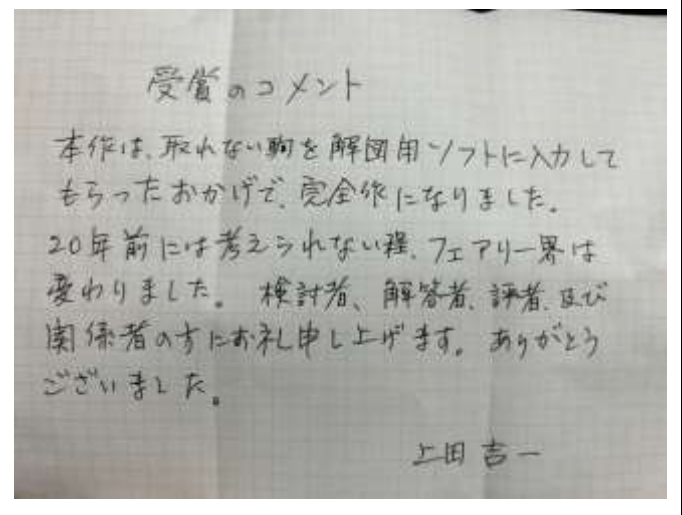 受賞のコメント
本作は、取れない駒を解図用ソフトに入力して
もらったおかげで、完全作になりました。
20年前には考えられない程、フェアリー界は
変わりました。検討者、解答者、評者、及び
関係者の方にお礼申し上げます。ありがとう
ございました。
上田吉一